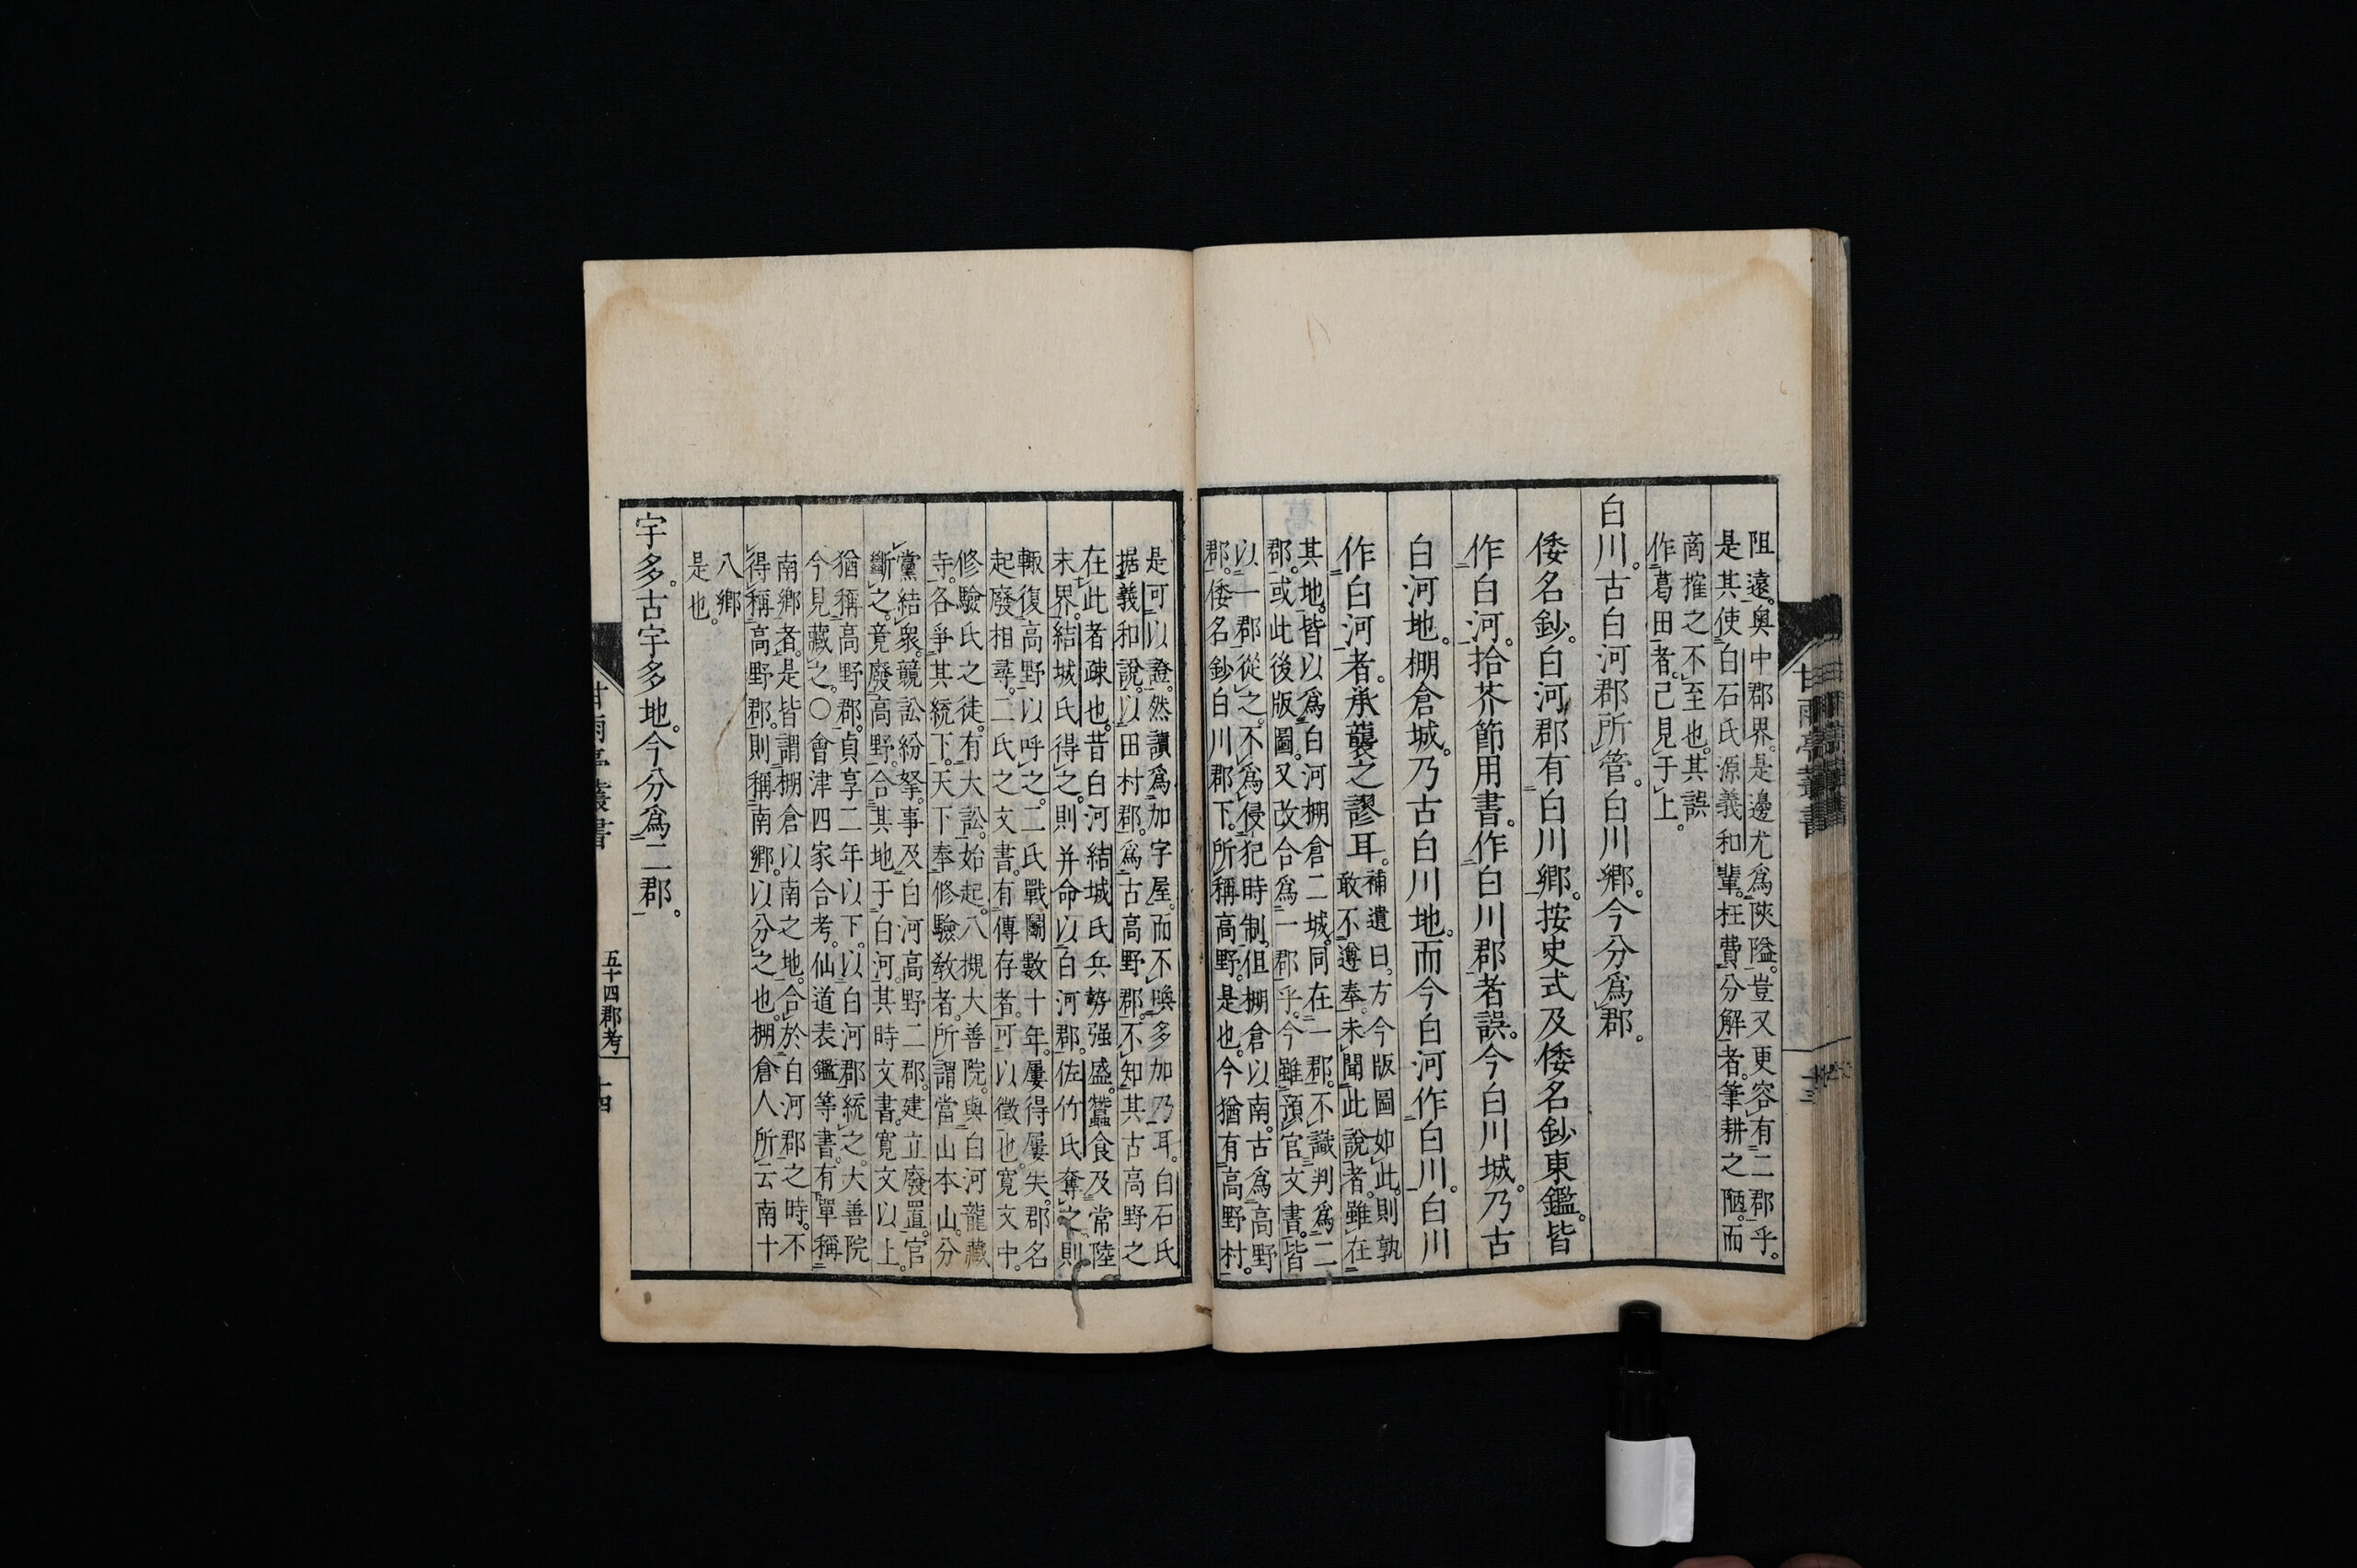 阻遠。奥中郡界。是邊尤爲陝隘。豈又更容有二郡乎。
是其使白石氏源義和輩。枉費分解者。筆耕之陋。而
商搉之不至也。其誤
作葛田者。己見于上。
白川。古白河郡所管。白川郷。今分爲郡。
倭名鈔。白河郡有白川郷。按史式及倭名鈔東鑑。皆
作白河。拾芥節用書。作白川郡者誤。今白川城。乃古
白河地。棚倉城。乃古白川地。而今白河作白川。白川
作白河者。承襲之謬耳。
補遺曰。方今版圖如此。則孰
敢不遵奉。未聞此説者。雖在
其地。皆以爲白河棚倉二城。同在一郡。不識判爲二
郡。或此後版圖。又改合爲一郡乎。今雖預官文書。皆
以一郡從之。不爲侵犯時制。但棚倉以南。古爲高野
郡。倭名鈔白川郡下。所稱高野。是也。今猶有高野村。
是可以證。然讀爲加字屋。而不喚多加乃耳。白石氏
据義和説。以田村郡。爲古高野郡。不知其古高野之
在此者疎也。昔白河結城氏兵勢强盛。蠶食及常陸
末界。結城氏得之。則并命以白河郡。佐竹氏奪之。則
輙復高野以呼之。二氏戰鬭數十年。屢得屢失。郡名
起廢相尋。二氏之文書。有傳存者。可以徴也。寛文中。
修驗氏之徒。有大訟。始起。八槻大善院。與白河龍藏
寺。各爭其統下。天下奉修驗教者。所謂當山本山。分
黨結衆。競訟紛拏。事及白河高野二郡。建立廢置。官
斷之。竟廢高野。合其地于白河。其時文書。寛文以上。
猶稱高野郡。貞享二年以下。以白河郡統之。大善院
今見藏之。○會津四家合考。仙道表鑑等書。有單稱
南郷者。是皆謂棚倉以南之地。合於白河郡之時。不
得稱高野郡。則稱南郷。以分之也。棚倉人所云南十
八郷
是也。
宇多。古宇多地。今分爲二郡。
五十四郡考
十四